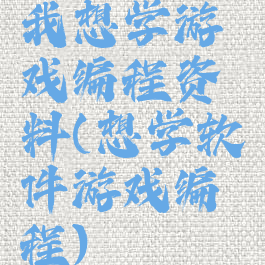 我想学游
戏编程资
料(想学软
件游戏编
程)